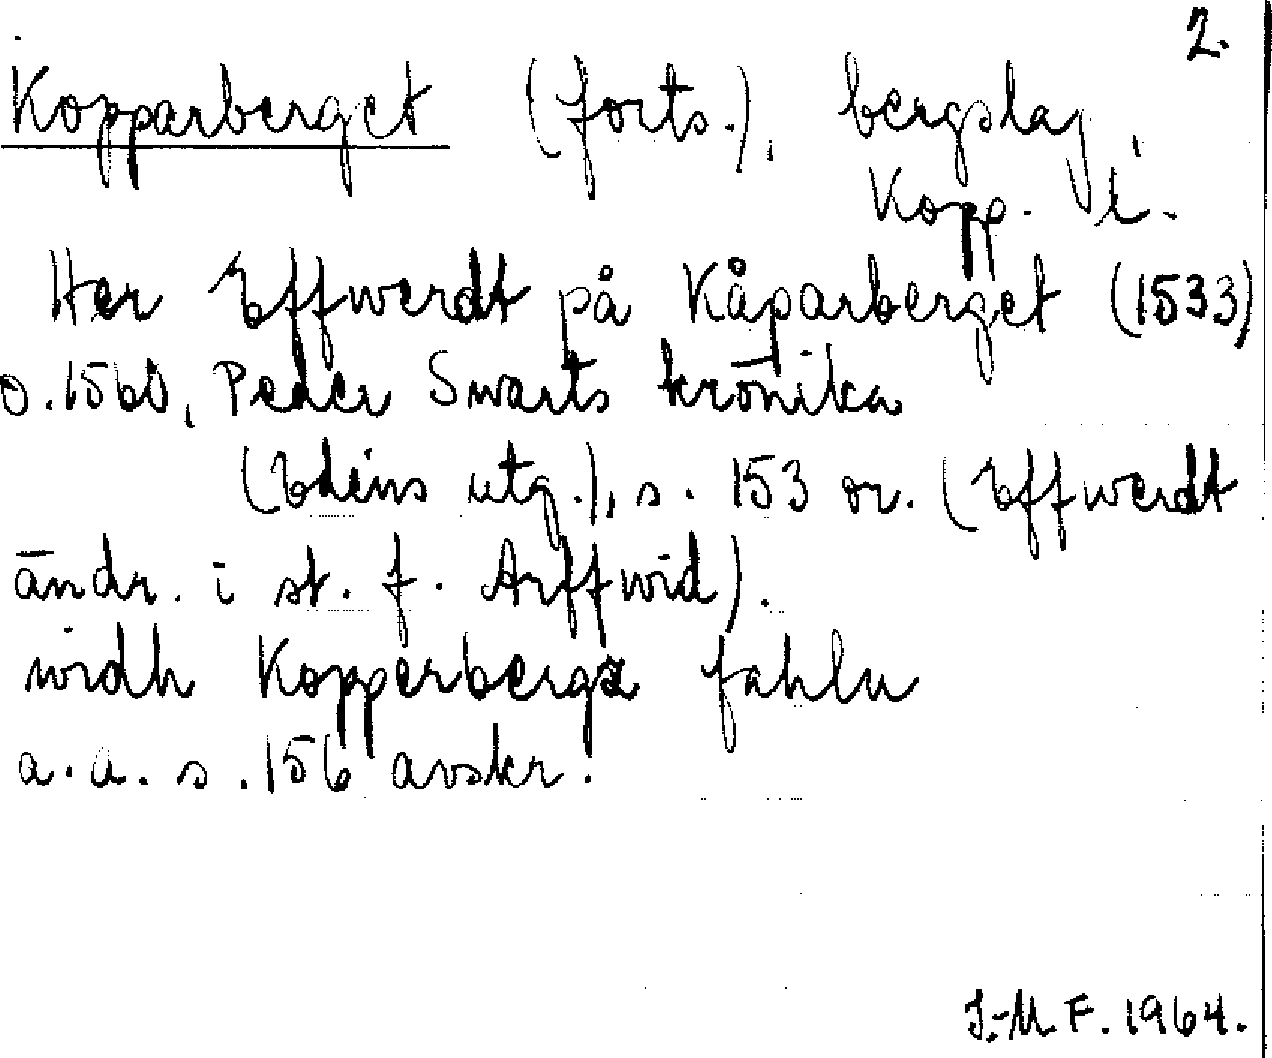 2.
Kopparberget (forts.), bergslag,
Kopp. l.
Her Effwerdt på Kåparberget (1533)
o. 1560, Peder Swarts krönika
(Edéns utg.), s. 153 or. (Effwerdt
ändr. i st. f. Arffwid).
widh Kopperbergx fahlu
a.a. s. 156 avskr.
I.-M. F. 1964.